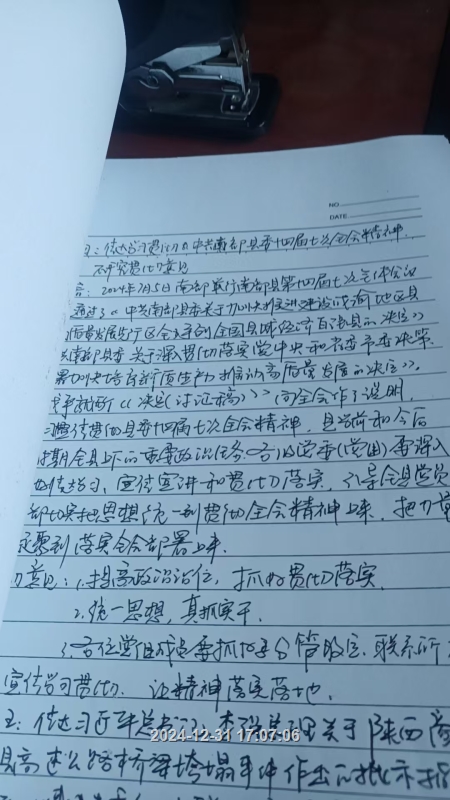 NO.
DATE
传达学习贯彻《中共南部县委十四届七次全会精神
研究贯彻意见
：2024年7月5日南部举行南部县第十四届七次全体会议
通过了《中共南部县委关于加快推进建设成渝地区县
质量发展先行区全力争创全国县域经济百强县的决定》
南部县委关于深入贯彻落实党中央和省委市委决策
署加快培育新质生产力推动高质量发展的决定》。
《决定(讨论稿)》向全会作了说明
贯彻县委十四届七次全会精神，是当前和今后
时期全县上下的重要政治任务。各级党委(党组)要深入
传达学习、宣传宣讲和贯彻落实，引导全县党员
部切实把思想统一到贯彻全会精神上来，把力量
凝聚到落实全会部署上来.
意见：1.提高政治站位，抓好贯彻落实.
2.统一思想，真抓实干.
3.各位党组成员要抓好分管股室、联系所
宣传学习贯彻，让精神落实落地.
五：传达习近平总书记、李强总理关于陕西商
县高速公路桥梁垮塌事件作出的批示指
2024-12-31 17:07:06